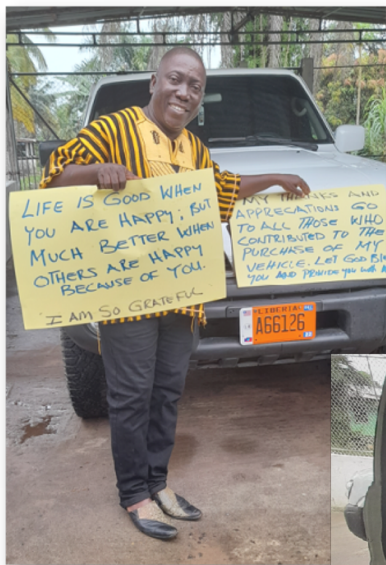 LIFE IS GOOD WHEN
YOU ARE HAPPY; BUT
MUCH BETTER WHEN
OTHERS ARE HAPPY
BECAUSE OF YOU.
I AM SO GRATEFUL
MY THANKS AND
APPRECATIONS GO
TO ALL THOSE WHO
CONTRIBUTED TO THE
PURCHASE OF MY
VEHICLE. LET GOD
YOU AND PROVIDE YOU WITH
LIBERIA
A66126